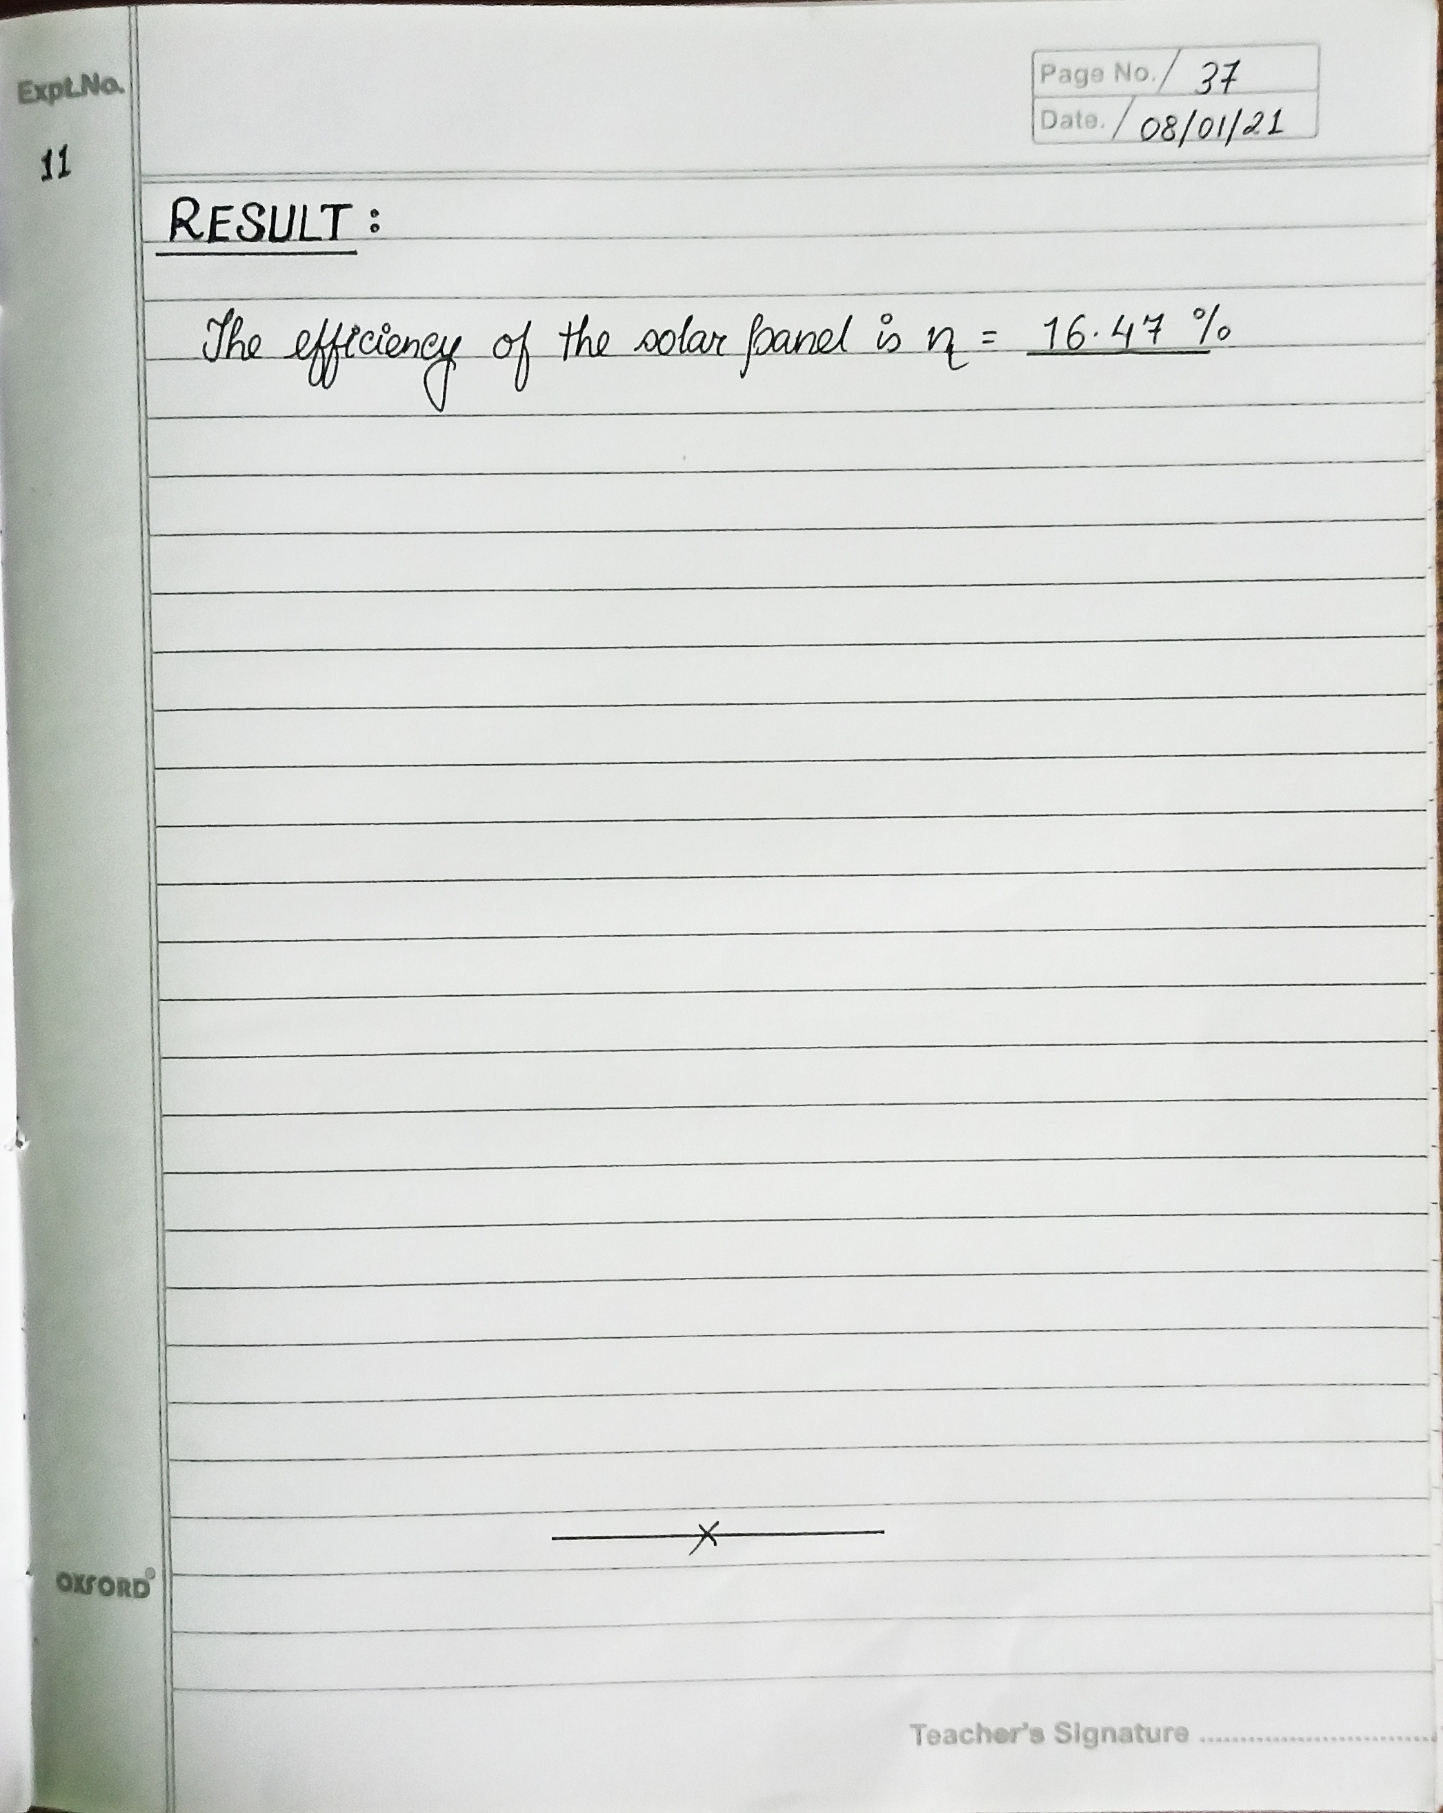 Expt.No.
11
Page No. 37
Date. 08/01/21
RESULT :
The efficiency of the solar panel is η = 16.47 %
OXFORD®
Teacher's Signature ..............................